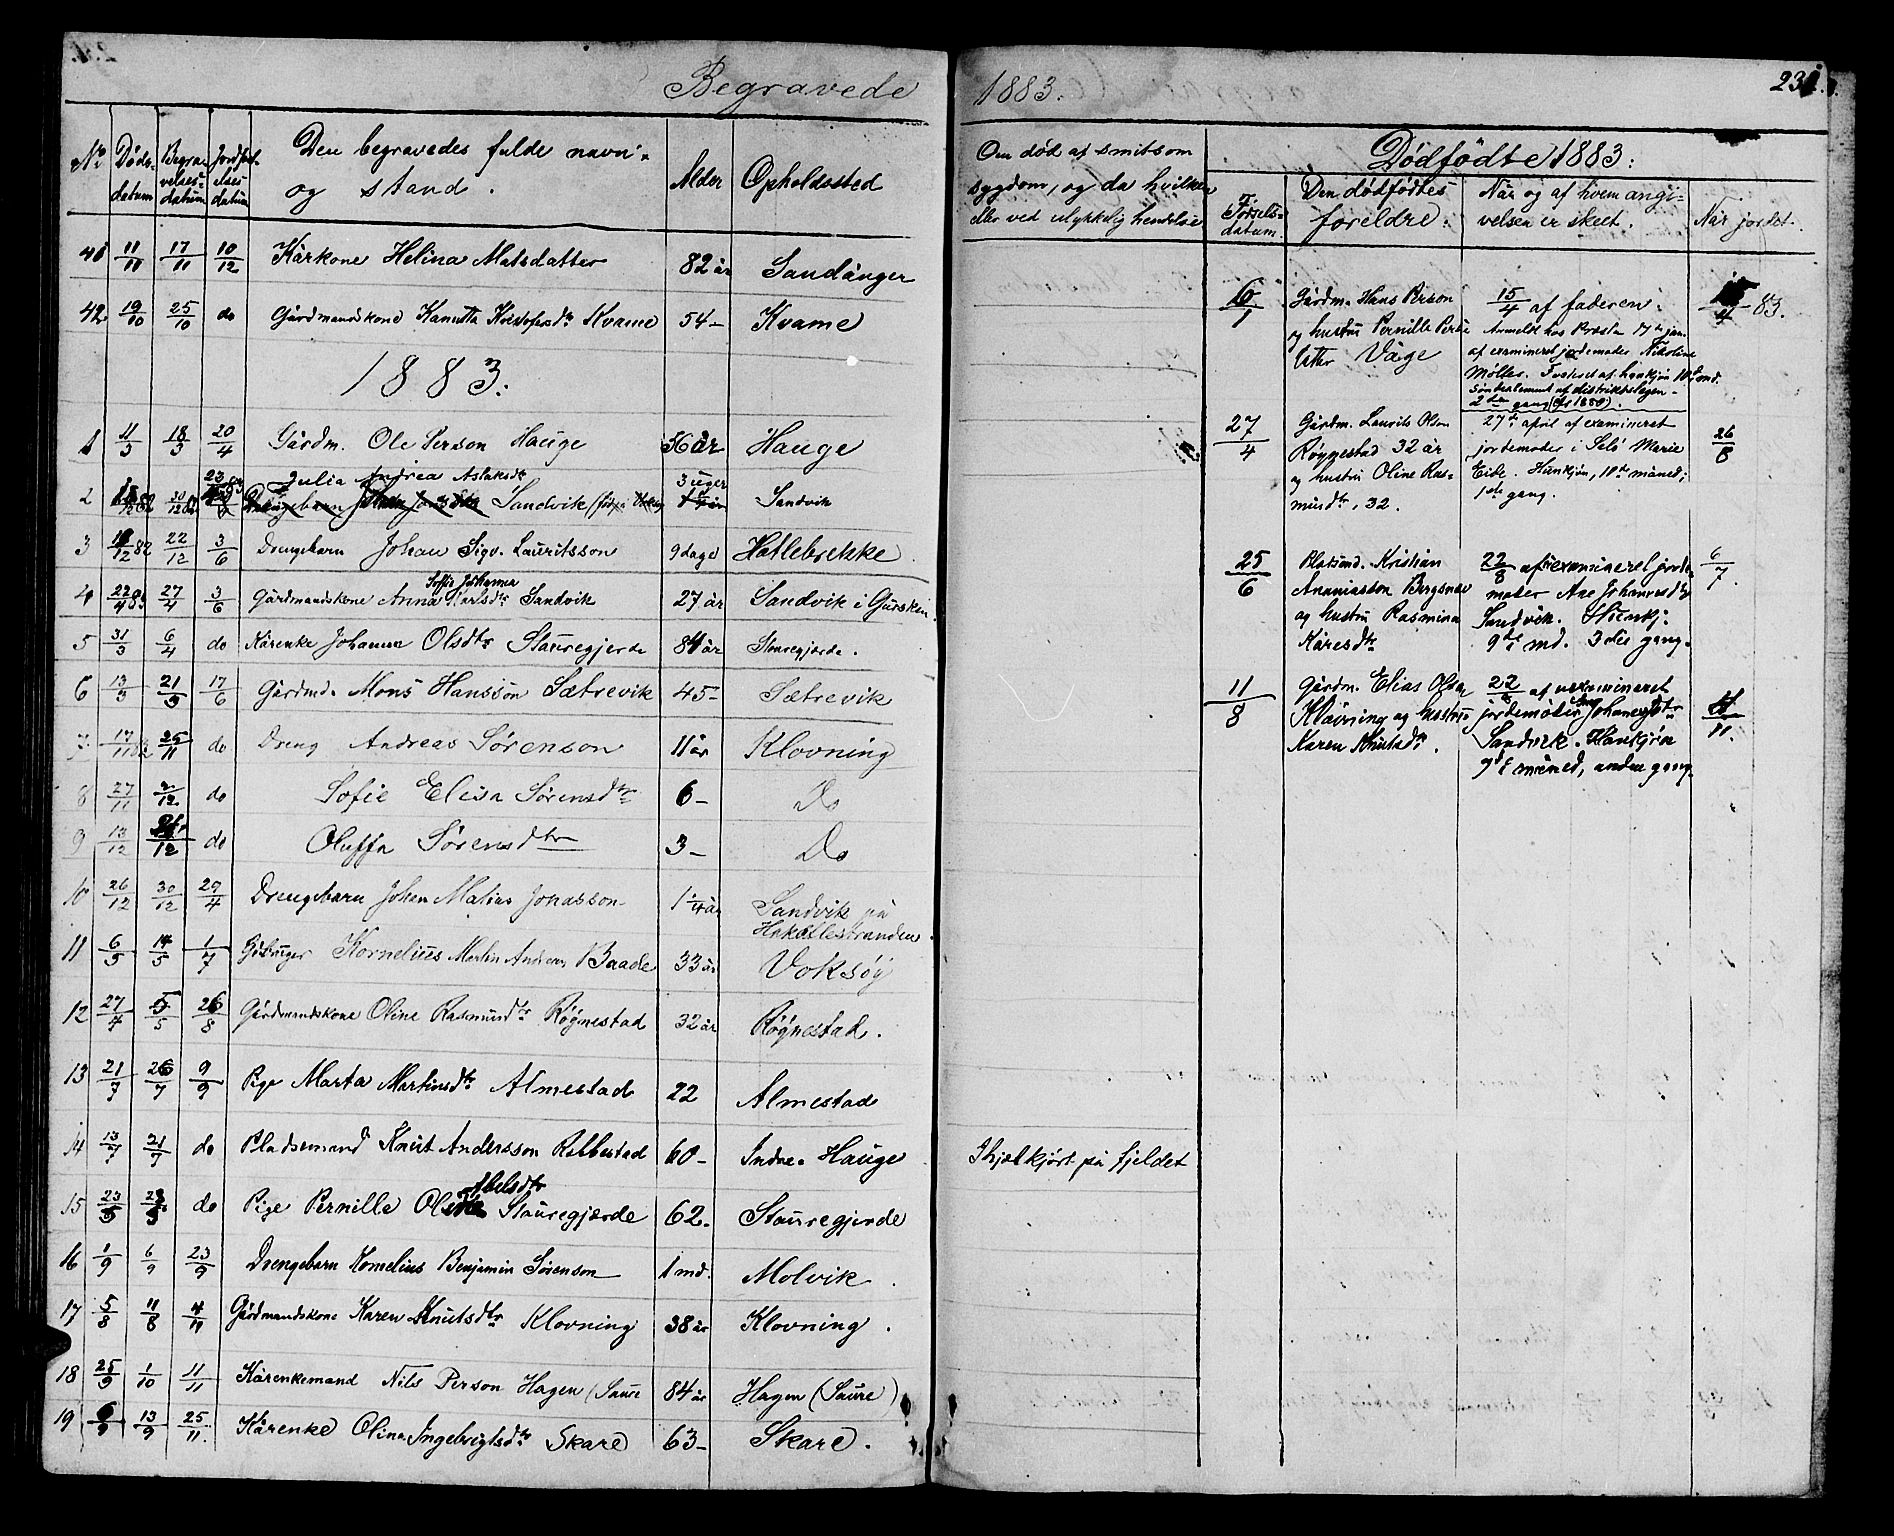 Begravede
1883.
231.
No. Døds-datum Begra-velses-datum Jordfæst-elses datum Den begravedes fulde navn og stand. Alder Opholdssted
41 11/10 17/11 10/12 Kårkone Helina Matsdatter 82 år Sandånger
42 19/10 25/10 do Gårdmandskone Kanutta Kristofersdtr Kvame 54 - Kvame
1883.
1 11/3 18/3 20/4 Gårdm. Ole Person Hauge 56 år Hauge
Julia Andrea Aslaksdtr 3 uger
2 30/12 82 Sandvik Sandvik
3 12 82 22/12 3/6 Drengebarn Johan Sigv. Lauritsson 9 dage Hatlebrekke
Sofie Johanna
4 22/4 83 27/4 3/6 Gårdmandskone Anna Karlsdtr Sandvik 27 år Sandvik i Gursken
5 31/3 6/4 do Kårenke Johanne Olsdtr Stauregjerde 84 år Stauregjerde.
6 13/3 21/3 17/6 Gårdmd. Mons Hansson Sætrevik 45 - Sætrevik
7 17/11 82 25/11 do Dreng Andreas Sørenson 11 år Klovning
8 27/11 2/12 do Sofie Elisa Sørensdtr 6 - Do
9 13/12 /12 do Oluffa Sørensdtr 3 - Do
10 26/12 30/12 29/4 Drengebarn Johan Matias Jonasson 1 1/4 år Sandvik på
Hakallestranden.
11 6/5 14/5 1/7 Kornelius Martin Andreas Baade 33 år Voksøy
12 27/4 5/5 26/8 Gårdmandskone Oline Rasmusdtr Røgnestad 32 år Røgnestad.
13 21/7 26/7 9/9 Pige Marta Martinsdtr Almestad 22 Almestad
14 13/7 21/7 do Pladsemand Knut Andersson Rabbestad 60 - Indre Hauge Ihjelkjørt på fjeldet
Abelsdtr
15 23/3 28/3 do Pige Pernille Stauregjærde 62. Stauregjerde
16 1/9 6/9 23/9 Drengebarn Kornelius Benjamin Sørenson 1 md. Molvik.
17 5/8 11/8 4/11 Gårdmandskone Karen Knutsdtr Klovning 38 år Klovning.
18 25/9 1/10 11/11 Kårenkemand Nils Person Hagen (Saure 84 år Hagen (Saure)
19 6/9 13/9 25/11 Kårenke Olina Ingebrigtsdtr Skare 63 - Skare.
Om død af smitsom
sygdom, og da hvilken
eller ved ulykkelig hendelse
Dødfødte 1883:
Fødsels-datum Den dødfødtes foreldre. Når og af hvem angi-velsen er skeet. Når jordet.
6/1 Gårdm. Hans Person
og hustru Pernille Pers-
datter Våge
15/4 af faderen.
Anmeldt hos Præsten 17de jan.
af examineret jordemoder Nikoline
Møller. Foster af hankjøn 10de md.
af distriktslægen -
2den gang (1880).
/4 83.
27/4 Gårdm. Laurits Olson
Røgnestad 32 år
og hustru Oline Ras-
musdtr, 32.
27de april af examineret
jordemoder i Selö Marie
Eide. Hunkjøn, 10de måned;
1ste gang.
26/8
25/6 Pladsmd. Kristian
Ananiasson Bergsnes
og hustru Rasmina
Kåresdtr
22/8 af examineret jorde-
moder Ane Johannesdtr
Sandvik.
9de md. 3die gang.
6/7.
11/8 Gårdm. Elias Olsen
Klovning og hustru
Karen Knutsdtr.
22/8 af uexamineret
jordemoder Ane Johannesdtr
Sandvik. Hankjøn
9de måned, anden gang.
4/11.